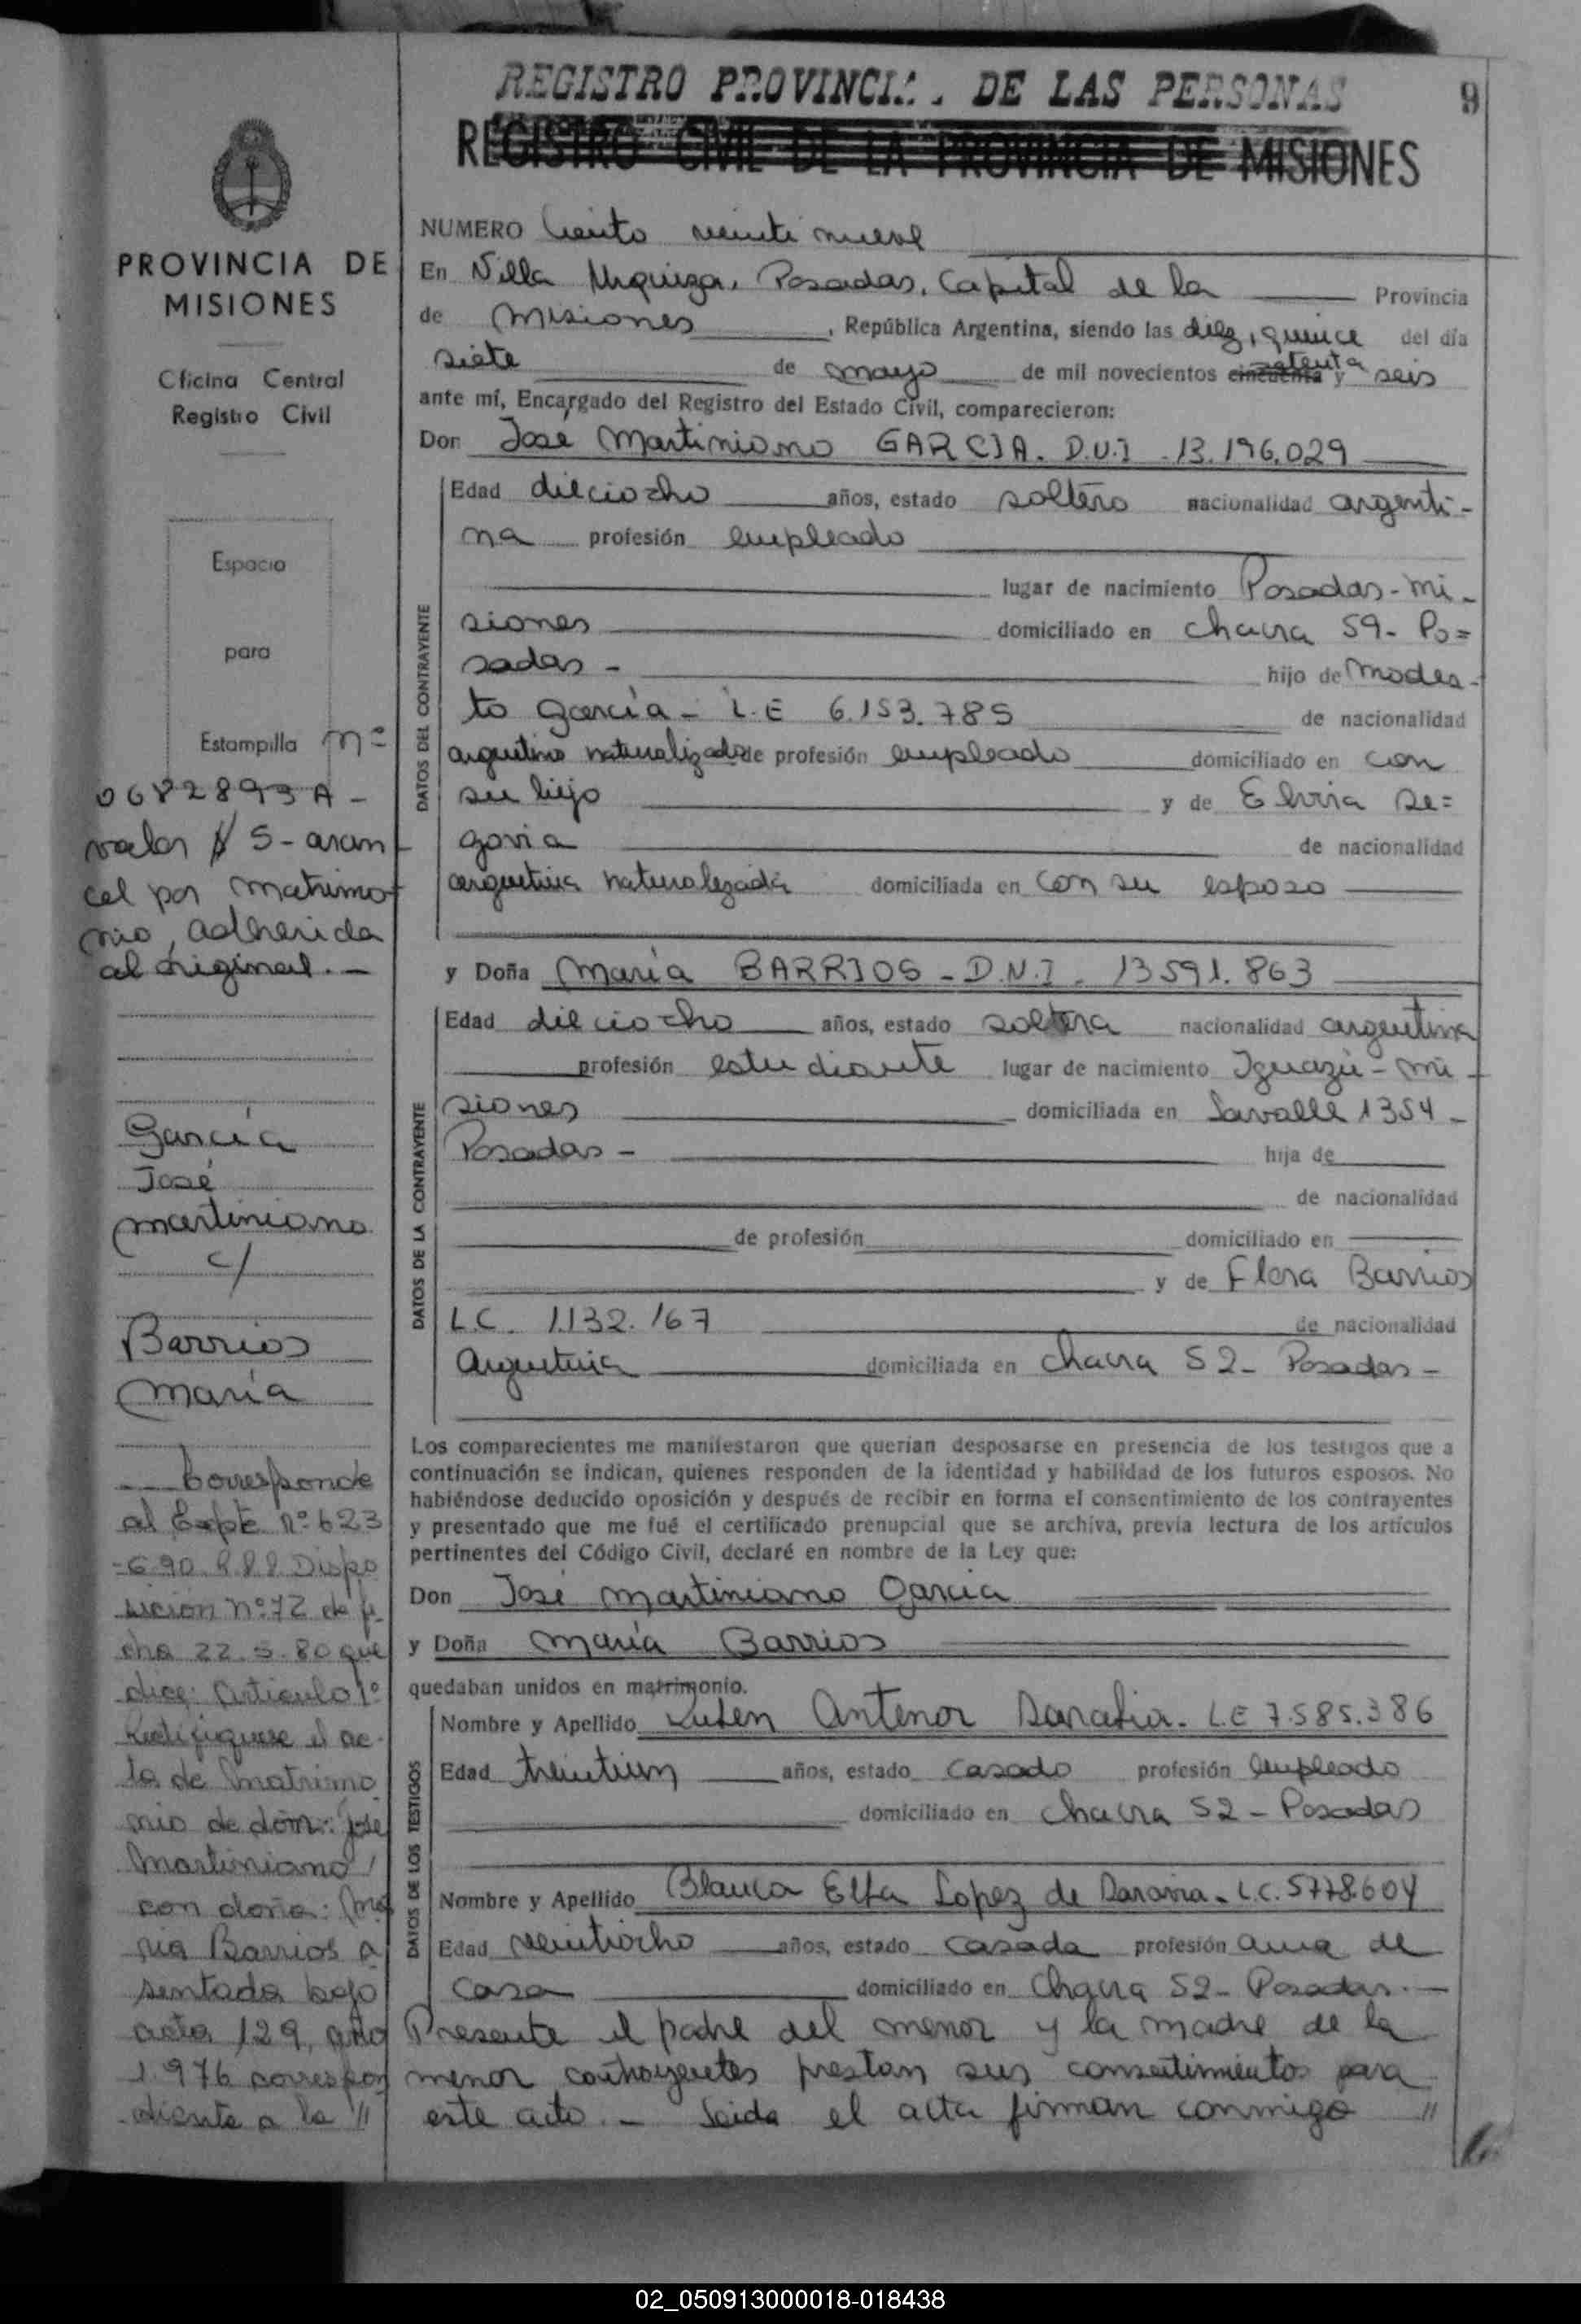 REGISTRO PROVINCIA. DE LAS PERSONAS
9
REGISTRO CIVIL DE LA PROVINCIA DE MISIONES
PROVINCIA DE
MISIONES
Oficina Central
Registro Civil
Espacio
para
Estampilla nº
0682893A-
valor $ 5- aran
cel por matrimo
nio, adherida
al original.-
García
José
Martiniano
c/
Barrios
María
Corresponde
al Expte nº 623
-690 Dispo
sición nº 72 de fe
cha 22.5.80 que
dice: Articulo 1º
Rectifíquese el ac
ta de matrimo
nio de don: José
Martiniano
con doña: Ma
ria Barrios a
sentada bajo
acta 129, año
1.976 correspon
diente a la //
NUMERO Ciento veinti nueve
En Villa Urquiza, Posadas, Capital de la Provincia
de Misiones, República Argentina, siendo las diez, quince del día
siete de mayo de mil novecientos cincuenta setenta y seis
ante mí, Encargado del Registro del Estado Civil, comparecieron:
Don José Martiniano GARCIA. D.N.I. 13.196.029
DATOS DEL CONTRAYENTE
Edad dieciocho años, estado soltero nacionalidad argenti-
na profesión empleado
lugar de nacimiento Posadas-Mi-
siones domiciliado en chacra 59- Po=
sadas - hijo de Modes-
to García - L.E 6.153.785 de nacionalidad
argentino naturalizado de profesión empleado domiciliado en con
su hijo y de Elvira Se=
govia de nacionalidad
argentina naturalizada domiciliada en con su esposo
y Doña María BARRIOS - D.N.I. 13591.863
DATOS DE LA CONTRAYENTE
Edad dieciocho años, estado soltera nacionalidad argentina
profesión estudiante lugar de nacimiento Iguazú - Mi-
siones domiciliada en Lavalle 1354-
Posadas - hija de
de nacionalidad
de profesión domiciliado en
y de Flora Barrios
L.C. 1.132.167 de nacionalidad
Argentina domiciliada en chacra 52- Posadas-
Los comparecientes me manifestaron que querían desposarse en presencia de los testigos que a
continuación se indican, quienes responden de la identidad y habilidad de los futuros esposos. No
habiéndose deducido oposición y después de recibir en forma el consentimiento de los contrayentes
y presentado que me fué el certificado prenupcial que se archiva, previa lectura de los artículos
pertinentes del Código Civil, declaré en nombre de la Ley que:
Don José Martiniano Garcia
y Doña María Barrios
quedaban unidos en matrimonio.
DATOS DE LOS TESTIGOS
Nombre y Apellido Ruben Antenor L.E 7.585.386
Edad treintiun años, estado casado profesión empleado
domiciliado en chacra 52 - Posadas
Nombre y Apellido Blanca Elfa Lopez de L.C. 5778604
Edad veintiocho años, estado casada profesión ama de
casa domiciliado en Chacra 52- Posadas.-
Presente el padre del menor y la madre de la
menor contrayentes prestan sus consentimientos para
este acto.- Leida el acta firman conmigo //
02_050913000018-018438